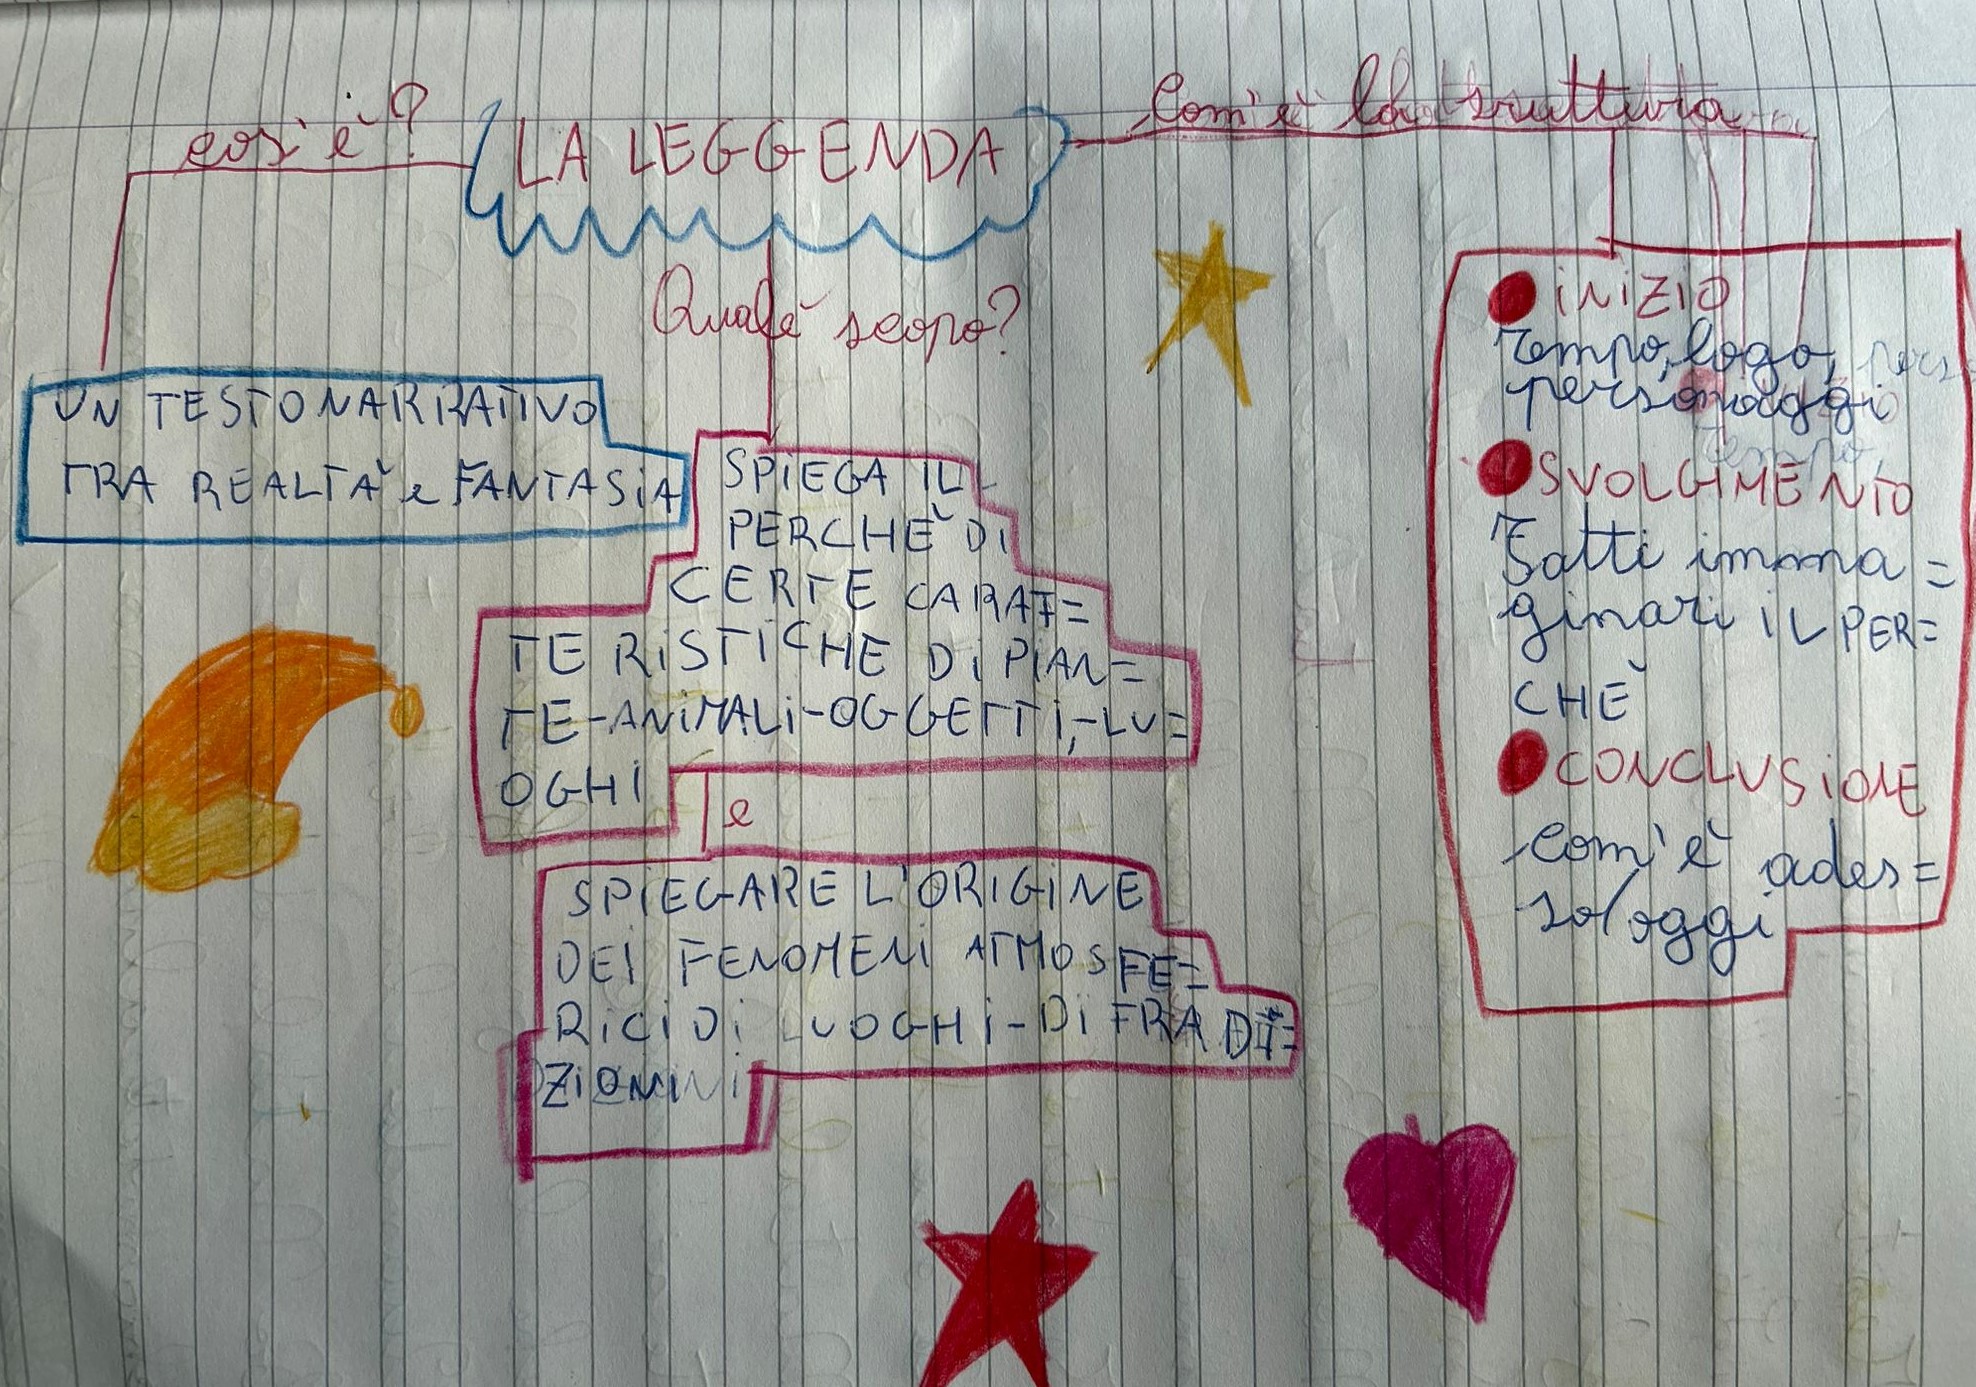 LA LEGGENDA
cos'è?
UN TESTO NARRATIVO
TRA REALTÀ e FANTASIA
Qual'è scopo?
SPIEGA IL
PERCHÈ DI
CERTE CARAT=
TERISTICHE DI PIAN=
TE-ANIMALI-OGGETTI,-LU=
OGHI
e
SPIEGARE L'ORIGINE
DEI FENOMENI ATMOSFE=
RICI DI LUOGHI-DI TRADI=
ZIONI
Com'è la struttura
INIZIO
Tempo, logo,
personaggi
SVOLGIMENTO
Fatti imma=
ginari IL PER=
CHÈ
CONCLUSIONE
com'è ades=
so/oggi